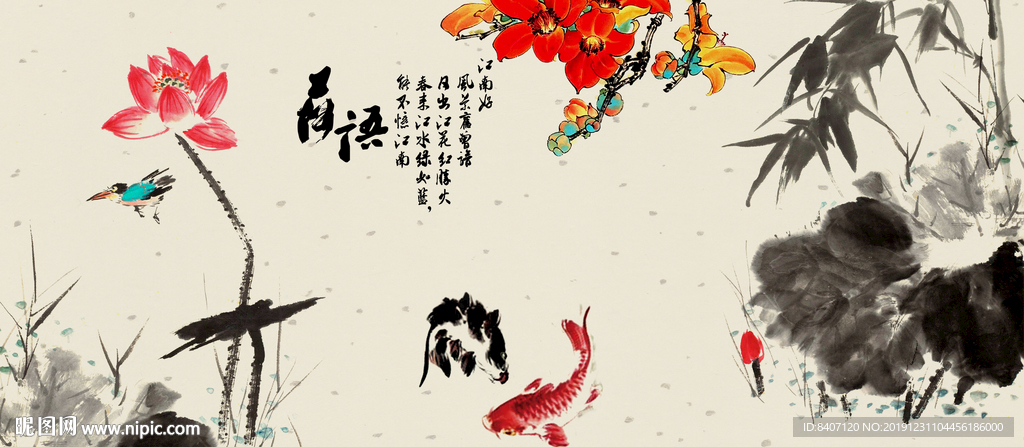 荷語
江南好
風景舊曾諳
日出江花紅勝火
春来江水绿如蓝，
能不憶江南
昵图网 www.nipic.com
ID:8407120 NO:20191231104456186000